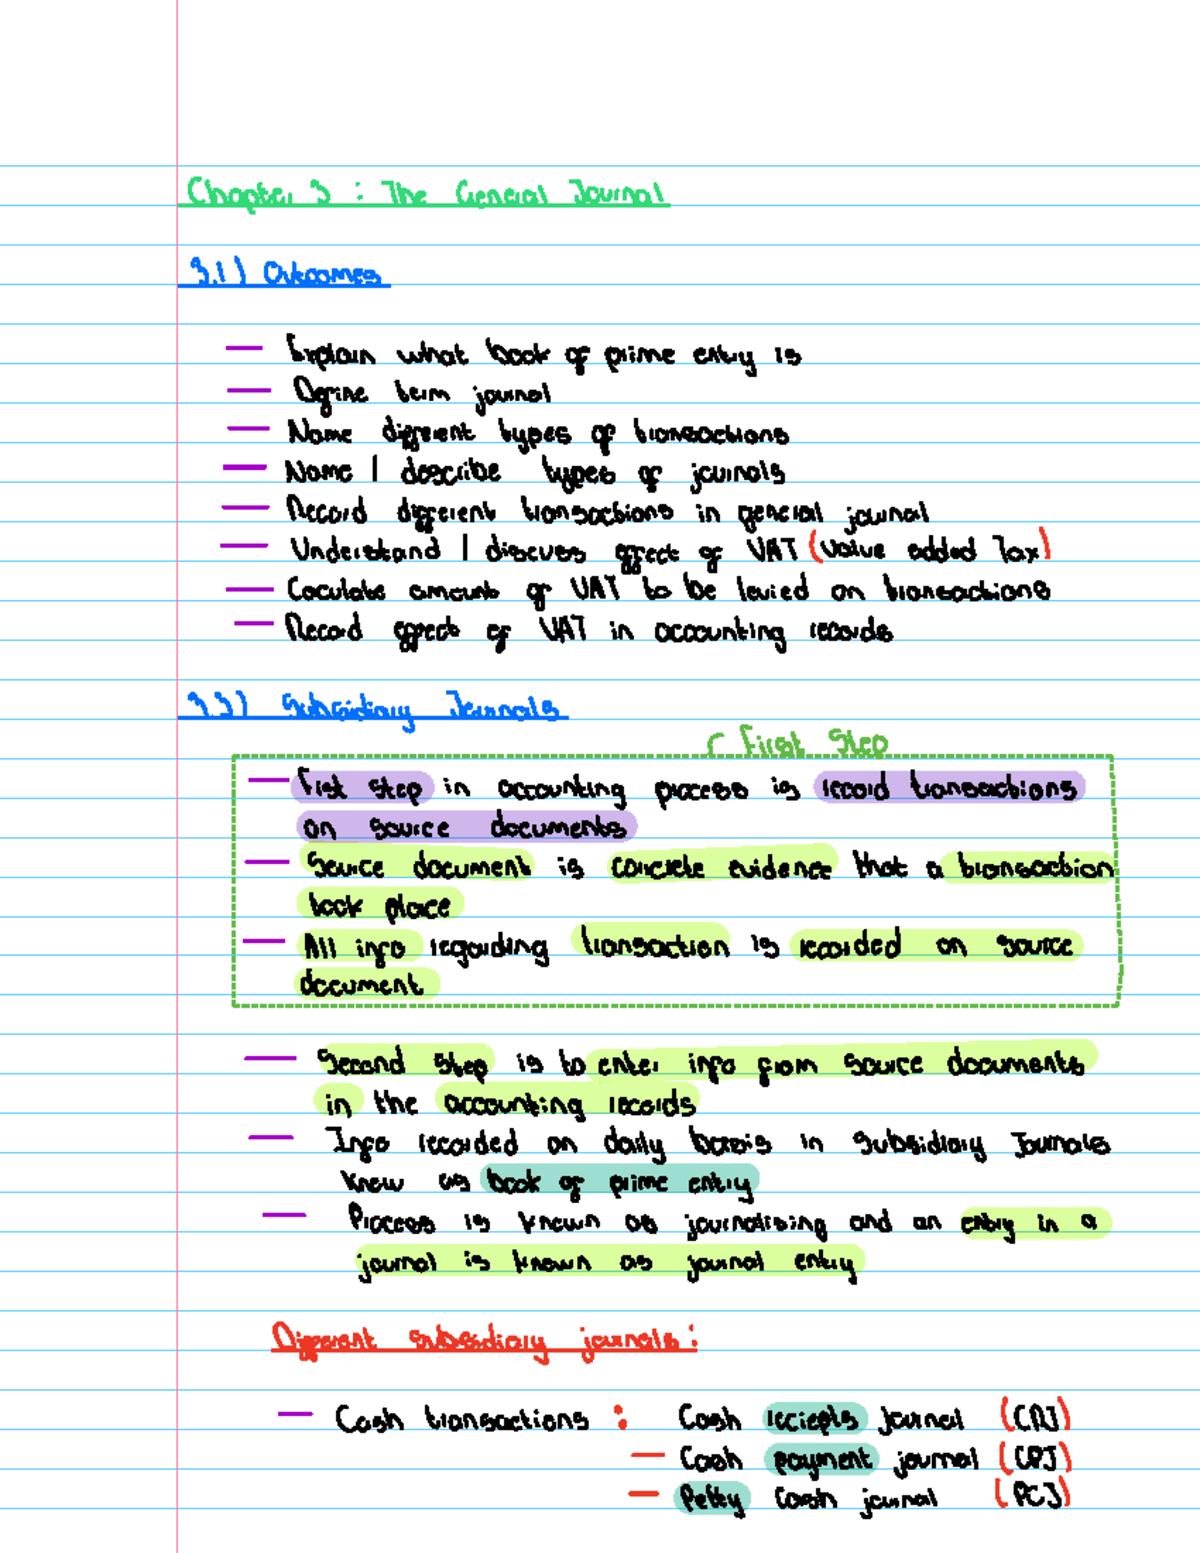 Chapter 3 : The General Journal
3.1) Outcomes
— Explain what book of prime entry is
— Define term journal
— Name different types of transactions
— Name | describe types of journals
— Record different transactions in general journal
— Understand | discuss effect of VAT (Value added Tax)
— Caculate amount of VAT to be levied on transactions
— Record effect of VAT in accounting records
3.3) Subsidiary Journals
First Step
— First step in accounting process is record transactions
on source documents
— Source document is concrete evidence that a transaction
took place
— All info regarding transaction is recorded on source
document
— Second step is to enter info from source documents
in the accounting records
— Info recorded on daily basis in subsidiary journals
know as book of prime entry
— Process is known as journalising and an entry in a
journal is known as journal entry
Different subsidiary journals :
— Cash transactions : Cash reciepts journal (CRJ)
— Cash payment journal (CPJ)
— Petty cash journal (PCJ)